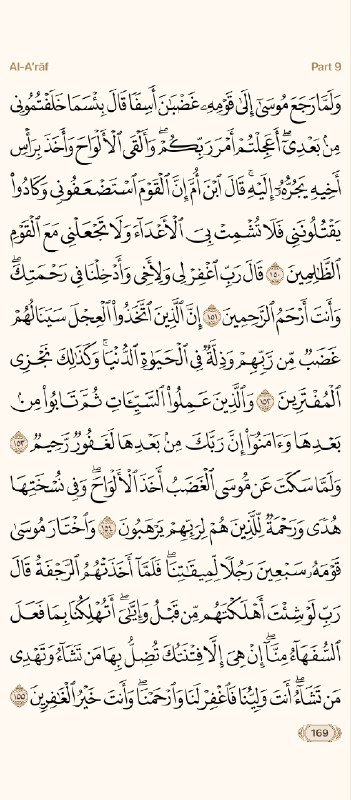 Al-A'rāf
Part 9
وَلَمَّا رَجَعَ مُوسَىٰٓ إِلَىٰ قَوْمِهِۦ غَضْبَٰنَ أَسِفًا قَالَ بِئْسَمَا خَلَفْتُمُونِى
مِنۢ بَعْدِىٓ ۖ أَعَجِلْتُمْ أَمْرَ رَبِّكُمْ ۖ وَأَلْقَى ٱلْأَلْوَاحَ وَأَخَذَ بِرَأْسِ
أَخِيهِ يَجُرُّهُۥٓ إِلَيْهِ ۚ قَالَ ٱبْنَ أُمَّ إِنَّ ٱلْقَوْمَ ٱسْتَضْعَفُونِى وَكَادُوا۟
يَقْتُلُونَنِى فَلَا تُشْمِتْ بِىَ ٱلْأَعْدَآءَ وَلَا تَجْعَلْنِى مَعَ ٱلْقَوْمِ
ٱلظَّٰلِمِينَ ١٥٠ قَالَ رَبِّ ٱغْفِرْ لِى وَلِأَخِى وَأَدْخِلْنَا فِى رَحْمَتِكَ ۖ
وَأَنتَ أَرْحَمُ ٱلرَّٰحِمِينَ ١٥١ إِنَّ ٱلَّذِينَ ٱتَّخَذُوا۟ ٱلْعِجْلَ سَيَنَالُهُمْ
غَضَبٌ مِّن رَّبِّهِمْ وَذِلَّةٌ فِى ٱلْحَيَوٰةِ ٱلدُّنْيَا ۚ وَكَذَٰلِكَ نَجْزِى
ٱلْمُفْتَرِينَ ١٥٢ وَٱلَّذِينَ عَمِلُوا۟ ٱلسَّيِّـَٔاتِ ثُمَّ تَابُوا۟ مِنۢ
بَعْدِهَا وَءَامَنُوٓا۟ إِنَّ رَبَّكَ مِنۢ بَعْدِهَا لَغَفُورٌ رَّحِيمٌ ١٥٣
وَلَمَّا سَكَتَ عَن مُّوسَى ٱلْغَضَبُ أَخَذَ ٱلْأَلْوَاحَ ۖ وَفِى نُسْخَتِهَا
هُدًى وَرَحْمَةٌ لِّلَّذِينَ هُمْ لِرَبِّهِمْ يَرْهَبُونَ ١٥٤ وَٱخْتَارَ مُوسَىٰ
قَوْمَهُۥ سَبْعِينَ رَجُلًا لِّمِيقَٰتِنَا ۖ فَلَمَّآ أَخَذَتْهُمُ ٱلرَّجْفَةُ قَالَ
رَبِّ لَوْ شِئْتَ أَهْلَكْتَهُم مِّن قَبْلُ وَإِيَّٰىَ ۖ أَتُهْلِكُنَا بِمَا فَعَلَ
ٱلسُّفَهَآءُ مِنَّآ ۖ إِنْ هِىَ إِلَّا فِتْنَتُكَ تُضِلُّ بِهَا مَن تَشَآءُ وَتَهْدِى
مَن تَشَآءُ ۖ أَنتَ وَلِيُّنَا فَٱغْفِرْ لَنَا وَٱرْحَمْنَا ۖ وَأَنتَ خَيْرُ ٱلْغَٰفِرِينَ ١٥٥
169